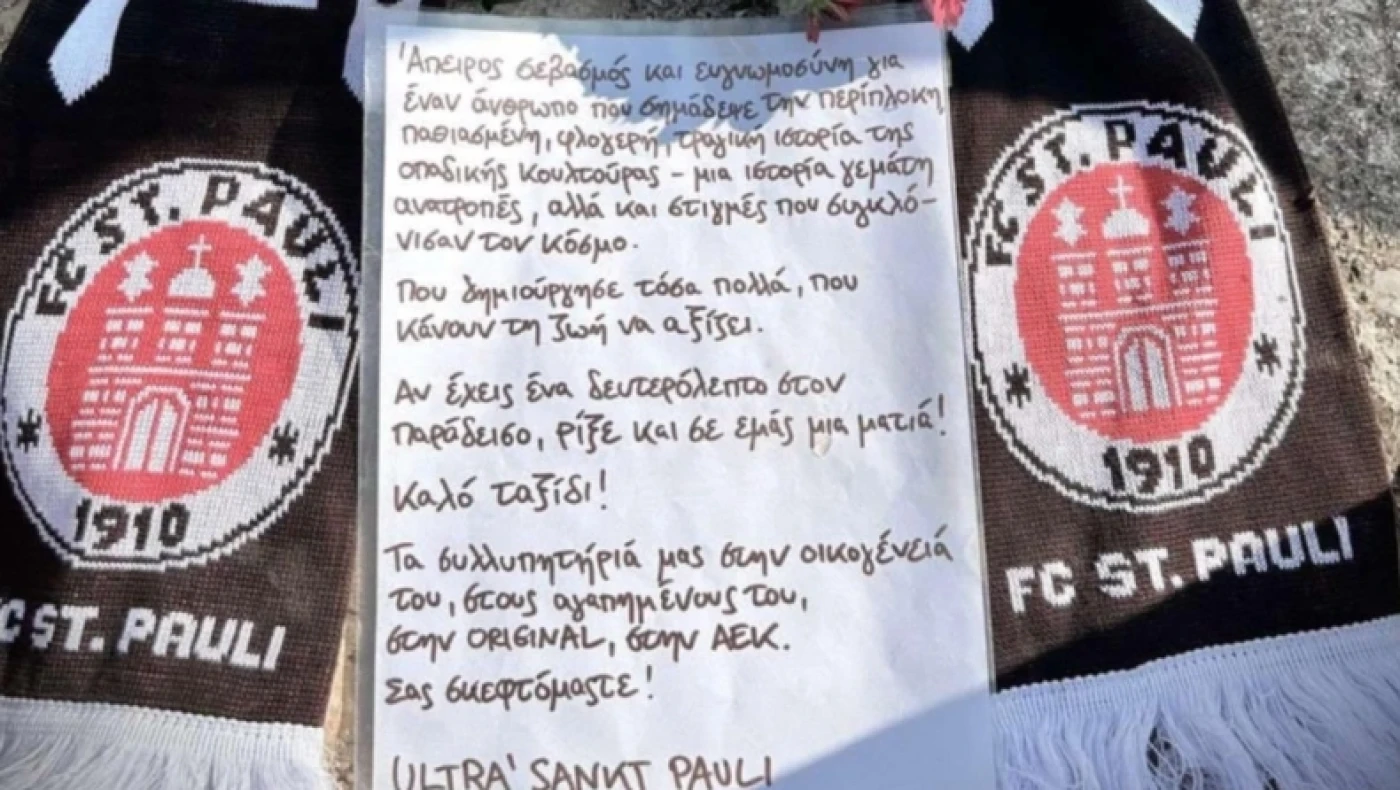 Άπειρος σεβασμός και ευγνωμοσύνη για
έναν άνθρωπο που σημάδεψε την περίπλοκη
παθιασμένη, φλογερή, τραγική ιστορία της
οπαδικής κουλτούρας – μια ιστορία γεμάτη
ανατροπές, αλλά και στιγμές που συγκλό-
νισαν τον κόσμο.
Που δημιούργησε τόσα πολλά, που
κάνουν τη ζωή να αξίζει.
Αν έχεις ένα δευτερόλεπτο στον
παράδεισο, ρίξε και σε εμάς μια ματιά!
Καλό ταξίδι!
Τα συλλυπητήριά μας στην οικογένειά
του, στους αγαπημένους του,
στην ORIGINAL, στην ΑΕΚ.
Σας σκεφτόμαστε!
ULTRA' SANKT PAULI
FC ST. PAULI
1910
FC ST. PAULI
FC ST. PAULI
1910
FC ST. PAULI